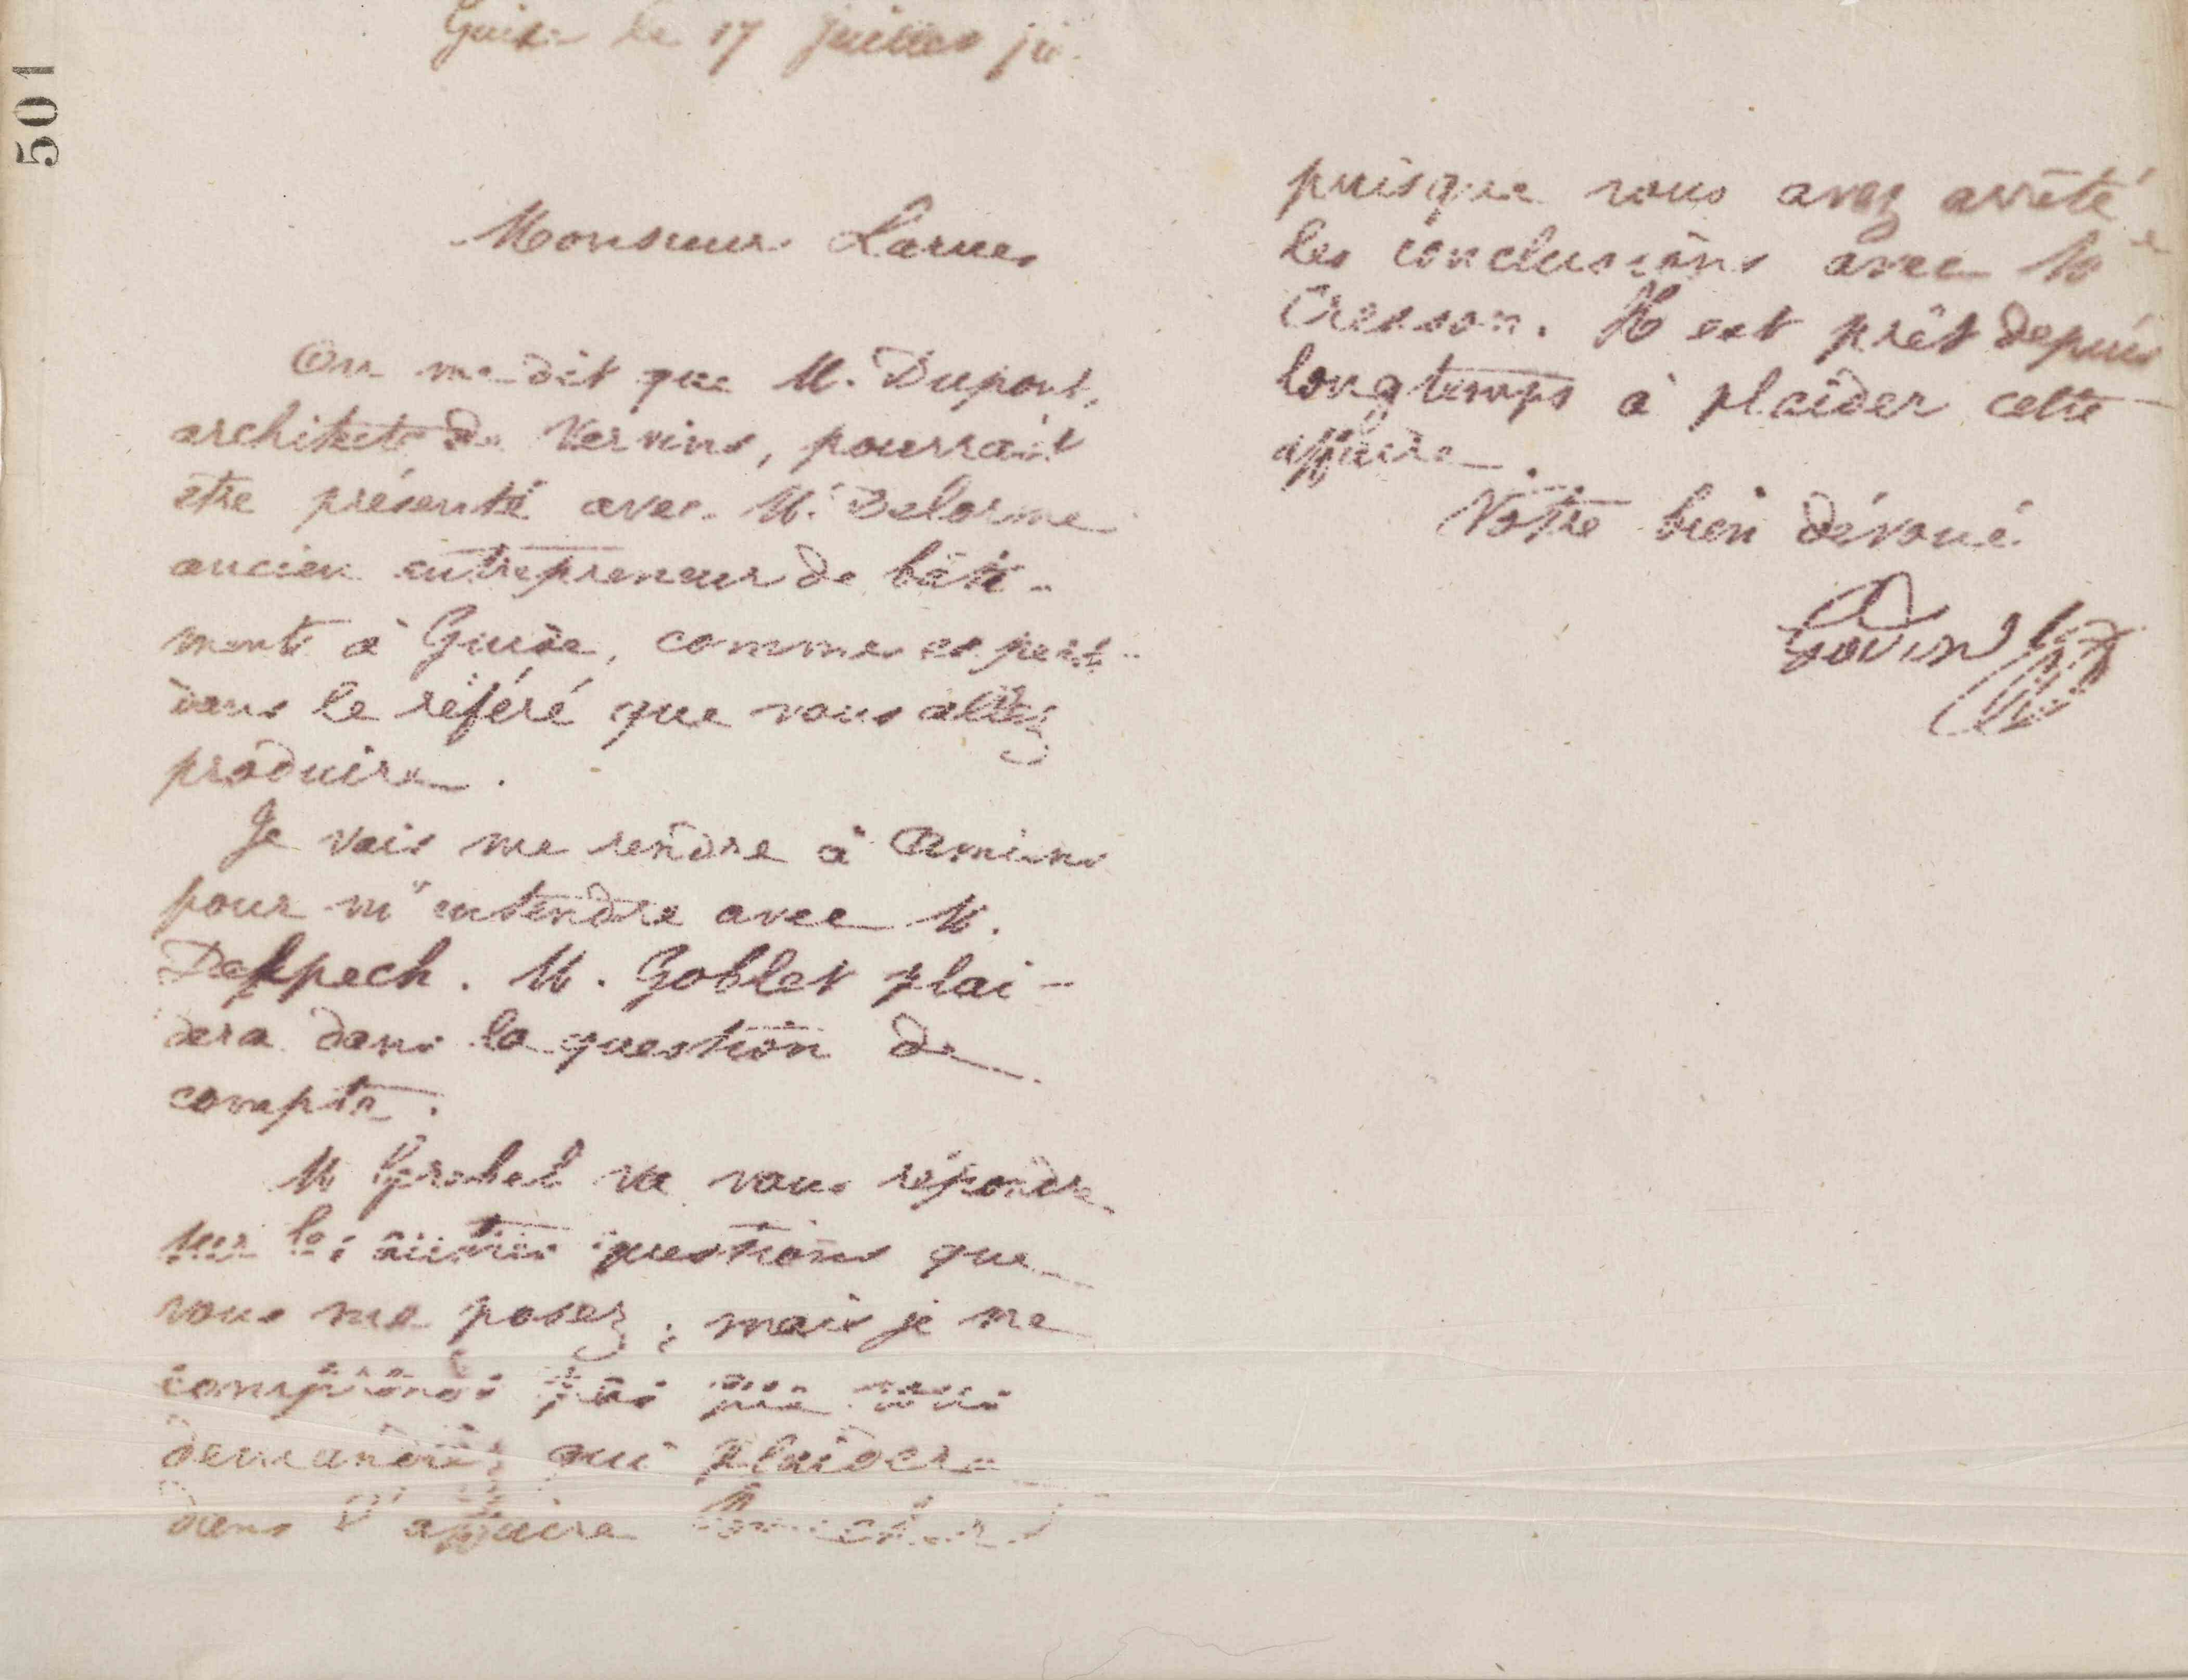 501
Guise le 17 juillet
Monsieur Larue,
On me dit que M. Dupont,
architecte de Vervins, pourrait
être présenté avec M. Delorme
ancien entrepreneur de bâti-
ments à Guise, comme expert
dans le référé que vous allez
produire.
Je vais me rendre à Amiens
pour m'entendre avec M.
Delpech. M. Goblet plai-
dera dans la question de
compte.
M Grebel va vous répondre
sur les autres questions que
vous me posez ; mais je ne
comprends pas que vous
demandiez qui plaidera
dans l'affaire
puisque vous avez arrêté
les conclusions avec Me
Cresson. Il est prêt depuis
longtemps à plaider cette
affaire.
Votre bien dévoué
Godin